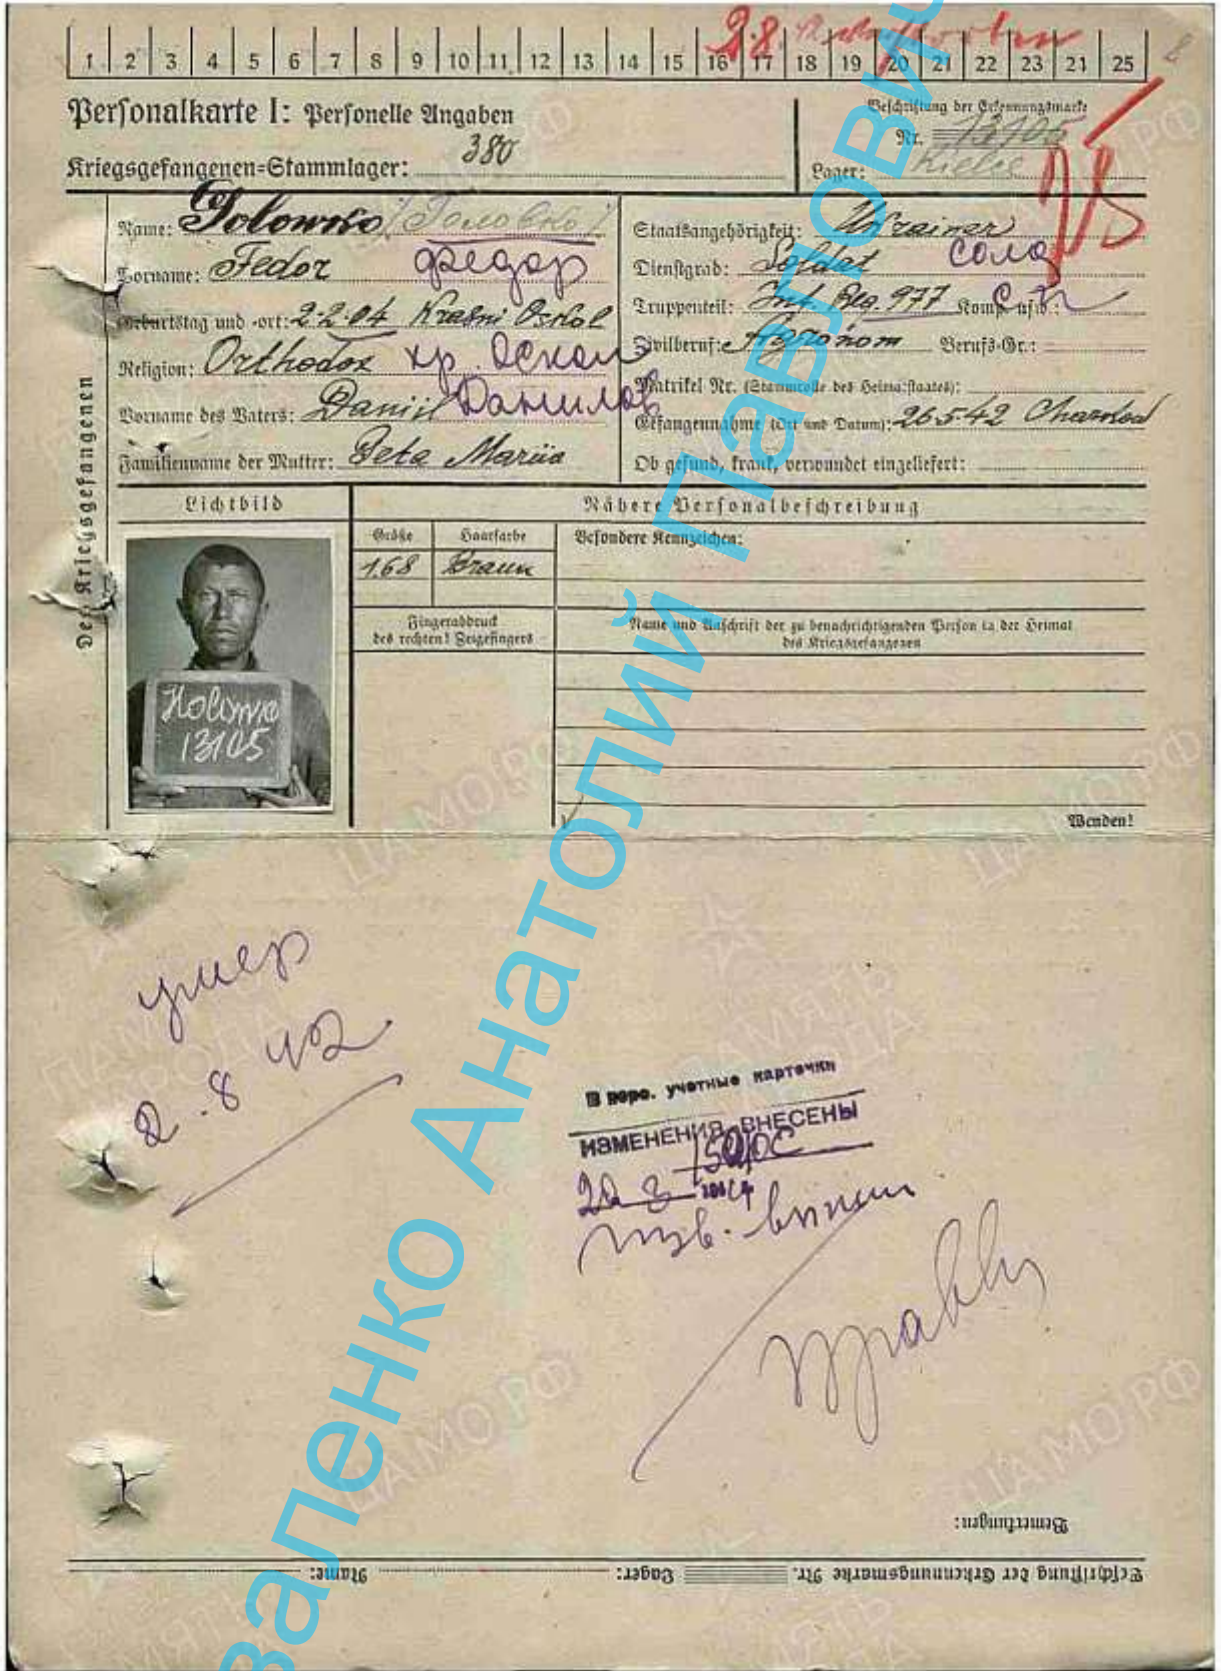 1 2 3 4 5 6 7 8 9 10 11 12 13 14 15 16 17 18 19 20 21 22 23 21 25
2.8.
8
Personalkarte I: Personelle Angaben
Beschriftung der Erkennungsmarke
Nr. 13105
Kriegsgefangenen=Stammlager: 380
Lager: Kielce
Des Kriegsgefangenen
Name: Golowko /Головко/
Vorname: Fedor Федор
Geburtstag und -ort: 2.2.04 Krasni Oskol
Religion: Orthodox кр. Оскол
Vorname des Vaters: Daniil Данилов
Familienname der Mutter: Beta Mariia
Staatsangehörigkeit: Ukrainer
Dienstgrad: Soldat солд
Truppenteil: Inf. Reg. 977 Komp. usw.: с.п
Zivilberuf: Agronom Berufs-Gr.:
Matrikel Nr. (Stammrolle des Heimatstaates):
Gefangennahme (Ort und Datum): 26.5.42 Charkow
Ob gesund, krank, verwundet eingeliefert:
Lichtbild
Nähere Personalbeschreibung
Größe Haarfarbe Besondere Kennzeichen:
168 Braun
Fingerabdruck
des rechten! Zeigefingers
Name und Anschrift der zu benachrichtigenden Person in der Heimat
des Kriegsgefangenen
Holowko
13105
Wenden!
умер
2.8 42
В перс. учетные карточки
ИЗМЕНЕНИЯ ВНЕСЕНЫ
Bemerkungen:
Beschriftung der Erkennungsmarke Nr. Lager: Name:
валенко Анатолий Павлович
ЦАМО РФ
ПАМЯТЬ
НАРОДА